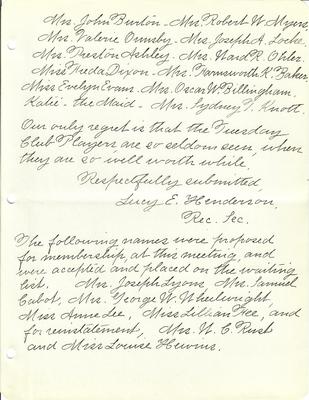 Mrs. John Burton - Mrs. Robert W. Myers,
Mrs. Valerie Ormsby - Mrs. Joseph A. Locke.
Mrs. Preston Ashley - Mrs. Ward R. Ohler.
Miss Freda Dixon - Mrs. Farnsworth K. Baker.
Miss Evelyn Evans - Mrs. Oscar W. Billingham.
Katie - the Maid - Mrs. Sydney T. Knott.
Our only regret is that the Tuesday
Club Players are so seldom seen, when
they are so well worth while.
Respectfully submitted,
Lucy E. Henderson,
Rec. Sec.
The following names were proposed
for membership, at this meeting, and
were accepted and placed on the waiting
list. Mrs. Joseph Lyons, Mrs. Samuel
Cabot, Mrs. George W. Wheelwright,
Miss Anne Lee, Miss Lillian Fee, and
for reinstatement, Mrs. N. C. Rust
and Miss Louise Hewins.